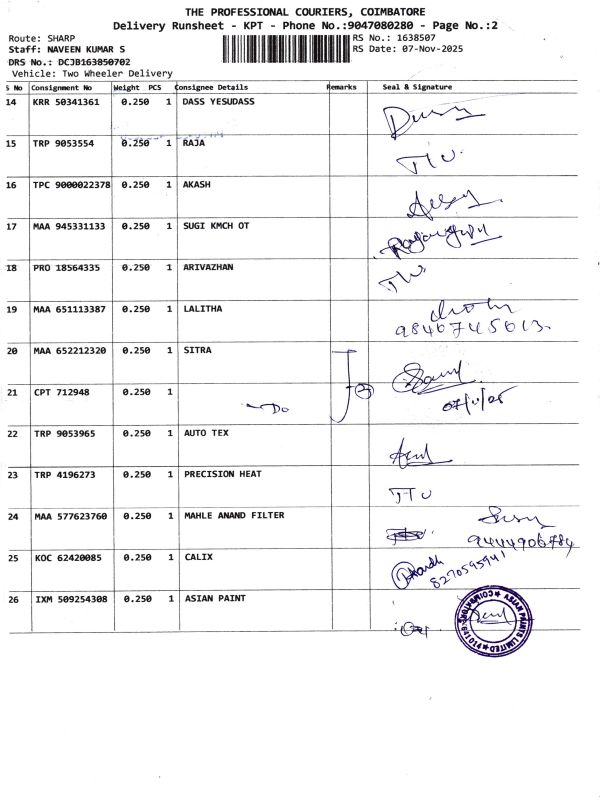 THE PROFESSIONAL COURIERS, COIMBATORE
Delivery Runsheet - KPT - Phone No.:9047080280 - Page No.:2
Route: SHARP RS No.: 1638507
Staff: NAVEEN KUMAR S RS Date: 07-Nov-2025
DRS No.: DCJB163850702
Vehicle: Two Wheeler Delivery
S No Consignment No Weight PCS Consignee Details Remarks Seal & Signature
14 KRR 50341361 0.250 1 DASS YESUDASS
15 TRP 9053554 0.250 1 RAJA
16 TPC 9000022378 0.250 1 AKASH
17 MAA 945331133 0.250 1 SUGI KMCH OT
18 PRO 18564335 0.250 1 ARIVAZHAN
19 MAA 651113387 0.250 1 LALITHA
9840745613
20 MAA 652212320 0.250 1 SITRA
21 CPT 712948 0.250 1 Do 2
07/11/25
22 TRP 9053965 0.250 1 AUTO TEX
23 TRP 4196273 0.250 1 PRECISION HEAT
24 MAA 577623760 0.250 1 MAHLE ANAND FILTER
9444906784
25 KOC 62420085 0.250 1 CALIX
8270595941
26 IXM 509254308 0.250 1 ASIAN PAINT
ASIAN PAINTS LIMITED COIMBATORE